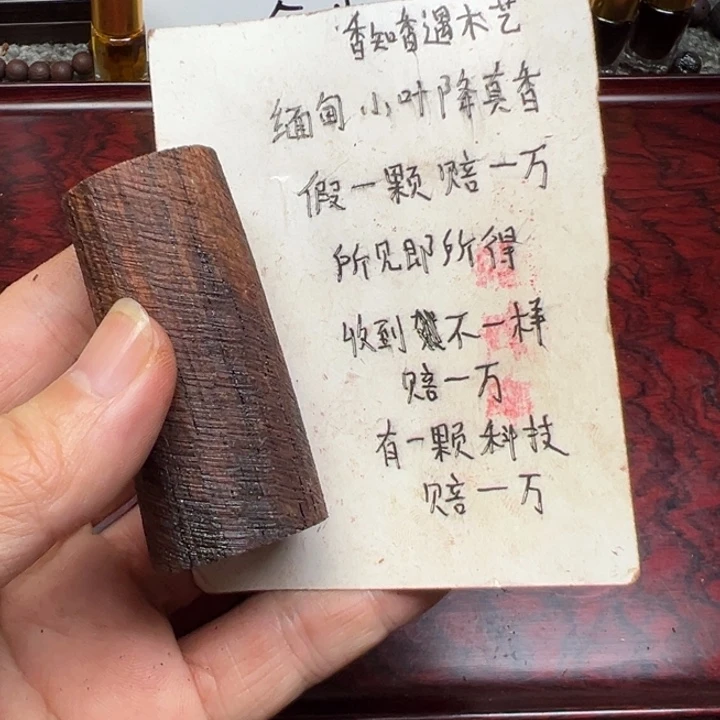 香知香遇木艺
缅甸小叶降真香
假一颗赔一万
所见即所得
收到不一样
赔一万
有一颗科技
赔一万